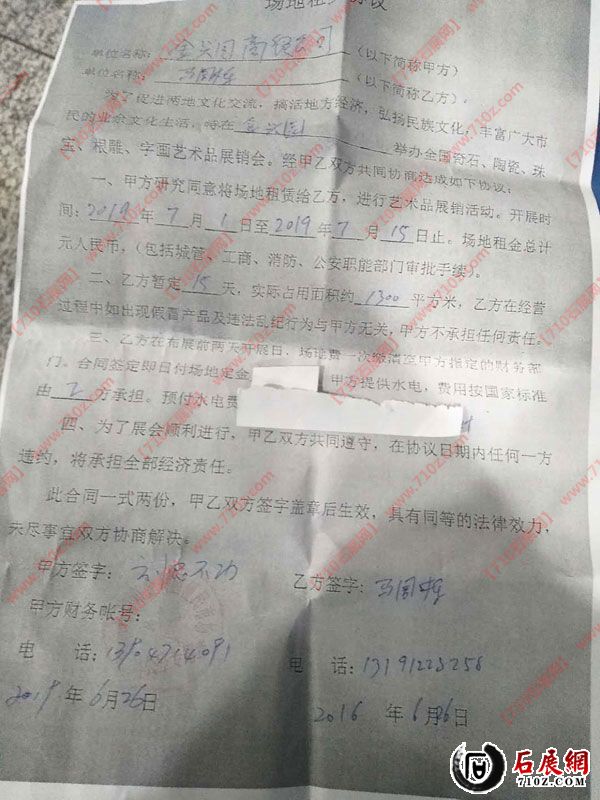 场地租
议
单位名称：
公司
（以下简称甲方）
单位名称：
（以下简称乙方）
为了促进两地文化交流，搞活地方经济，弘扬民族文化，丰富广大市
民的业余文化生活，特在
举办全国奇石、陶瓷、珠
宝、根雕、字画艺术品展销会。经甲乙双方共同协商达成如下协议：
一、甲方研究同意将场地租赁给乙方，进行艺术品展销活动。开展时
间：2019年7月1日至2019年7月15日止。场地租金总计
元人民币，（包括城管、工商、消防、公安职能部门审批手续）。
二、乙方暂定15天，实际占用面积约1300平方米，乙方在经营
过程中如出现假冒产品及违法乱纪行为与甲方无关，甲方不承担任何责任。
三、乙方在布展前两天开展日，场地费一次缴清至甲方指定的财务部
门。合同签定即日付场地定金
甲方提供水电，费用按国家标准
由乙方承担。预付水电费
四、为了展会顺利进行，甲乙双方共同遵守，在协议日期内任何一方
违约，将承担全部经济责任。
此合同一式两份，甲乙双方签字盖章后生效，具有同等的法律效力，
未尽事宜双方协商解决。
甲方签字：
乙方签字：
甲方财务帐号：
电 话：13904714091
电 话：13191223258
2019年6月26日
2016 年6月26日
石展網
7102.COM